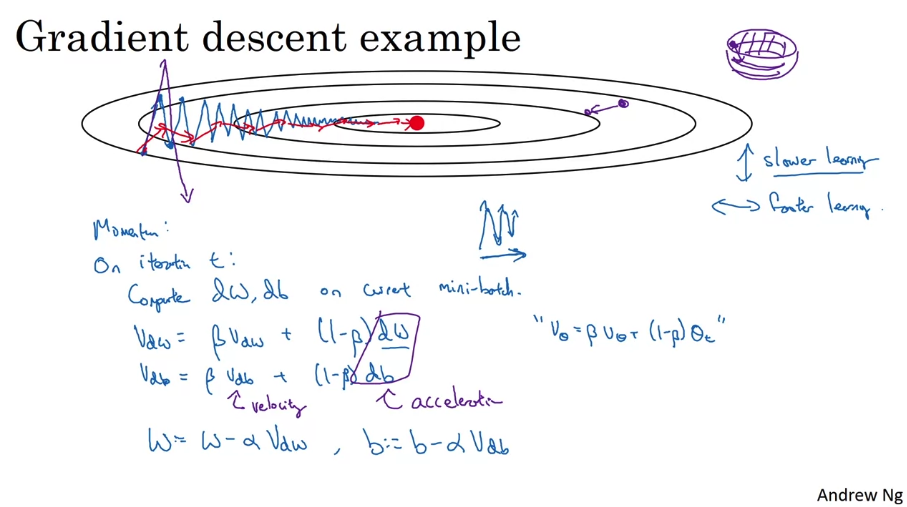 Gradient descent example
↕ slower learning
↔ faster learning.
Momentum:
On iteration t:
Compute dW, db on current mini-batch.
V_dw = βV_dw + (1-β)dW
"V_θ = βV_θ + (1-β)θ_t"
V_db = βV_db + (1-β)db
velocity
acceleration
W = W - αV_dw , b := b - αV_db
Andrew Ng